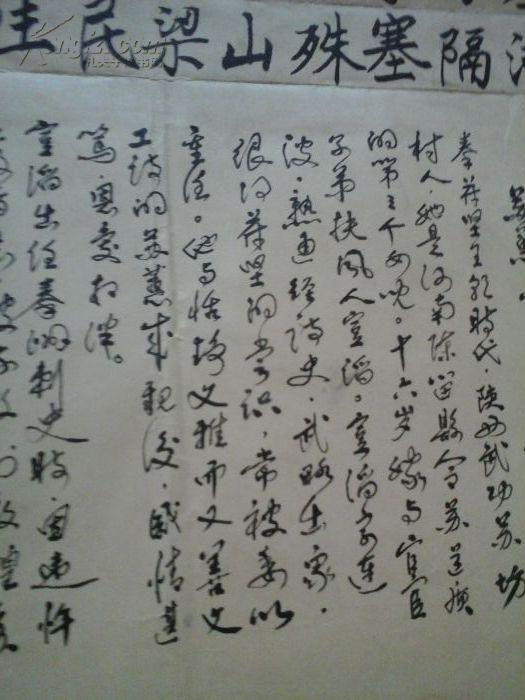 隔塞殊山梁民生
秦苻坚王朝时代，陕西武功苏坊
村人，她是河南陈留县令苏道质
的第三个女儿。十六岁嫁与官宦
子弟扶风人窦滔。窦滔字连
波，熟通经诗史，武略出众，
很得苻坚的赏识，常被委以
重任。他与恬静文雅而又善文
工诗的苏蕙成亲后，感情甚
笃，恩爱相深。
窦滔出任秦州刺史时，因违忤